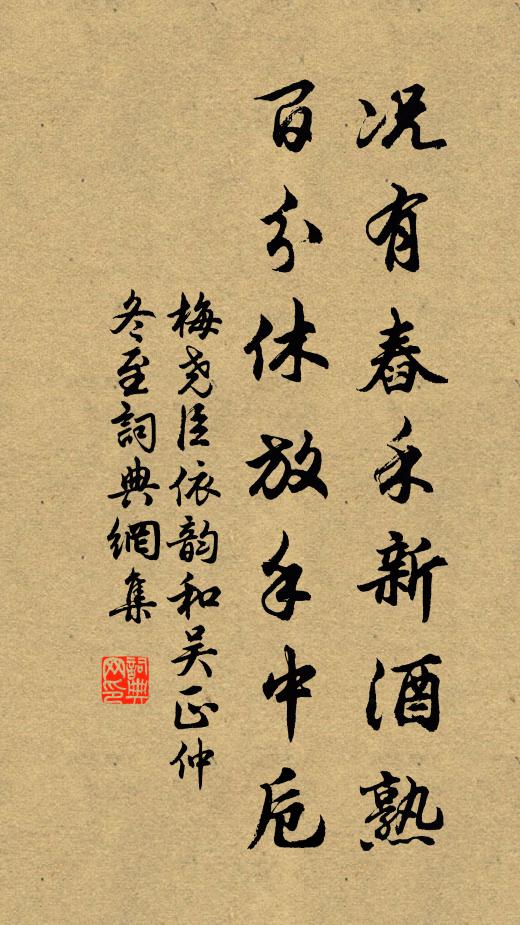 况有舂禾新酒熟
百分休放手中卮
梅尧臣依韵和吴正仲
冬至詞典網集
詞典网印